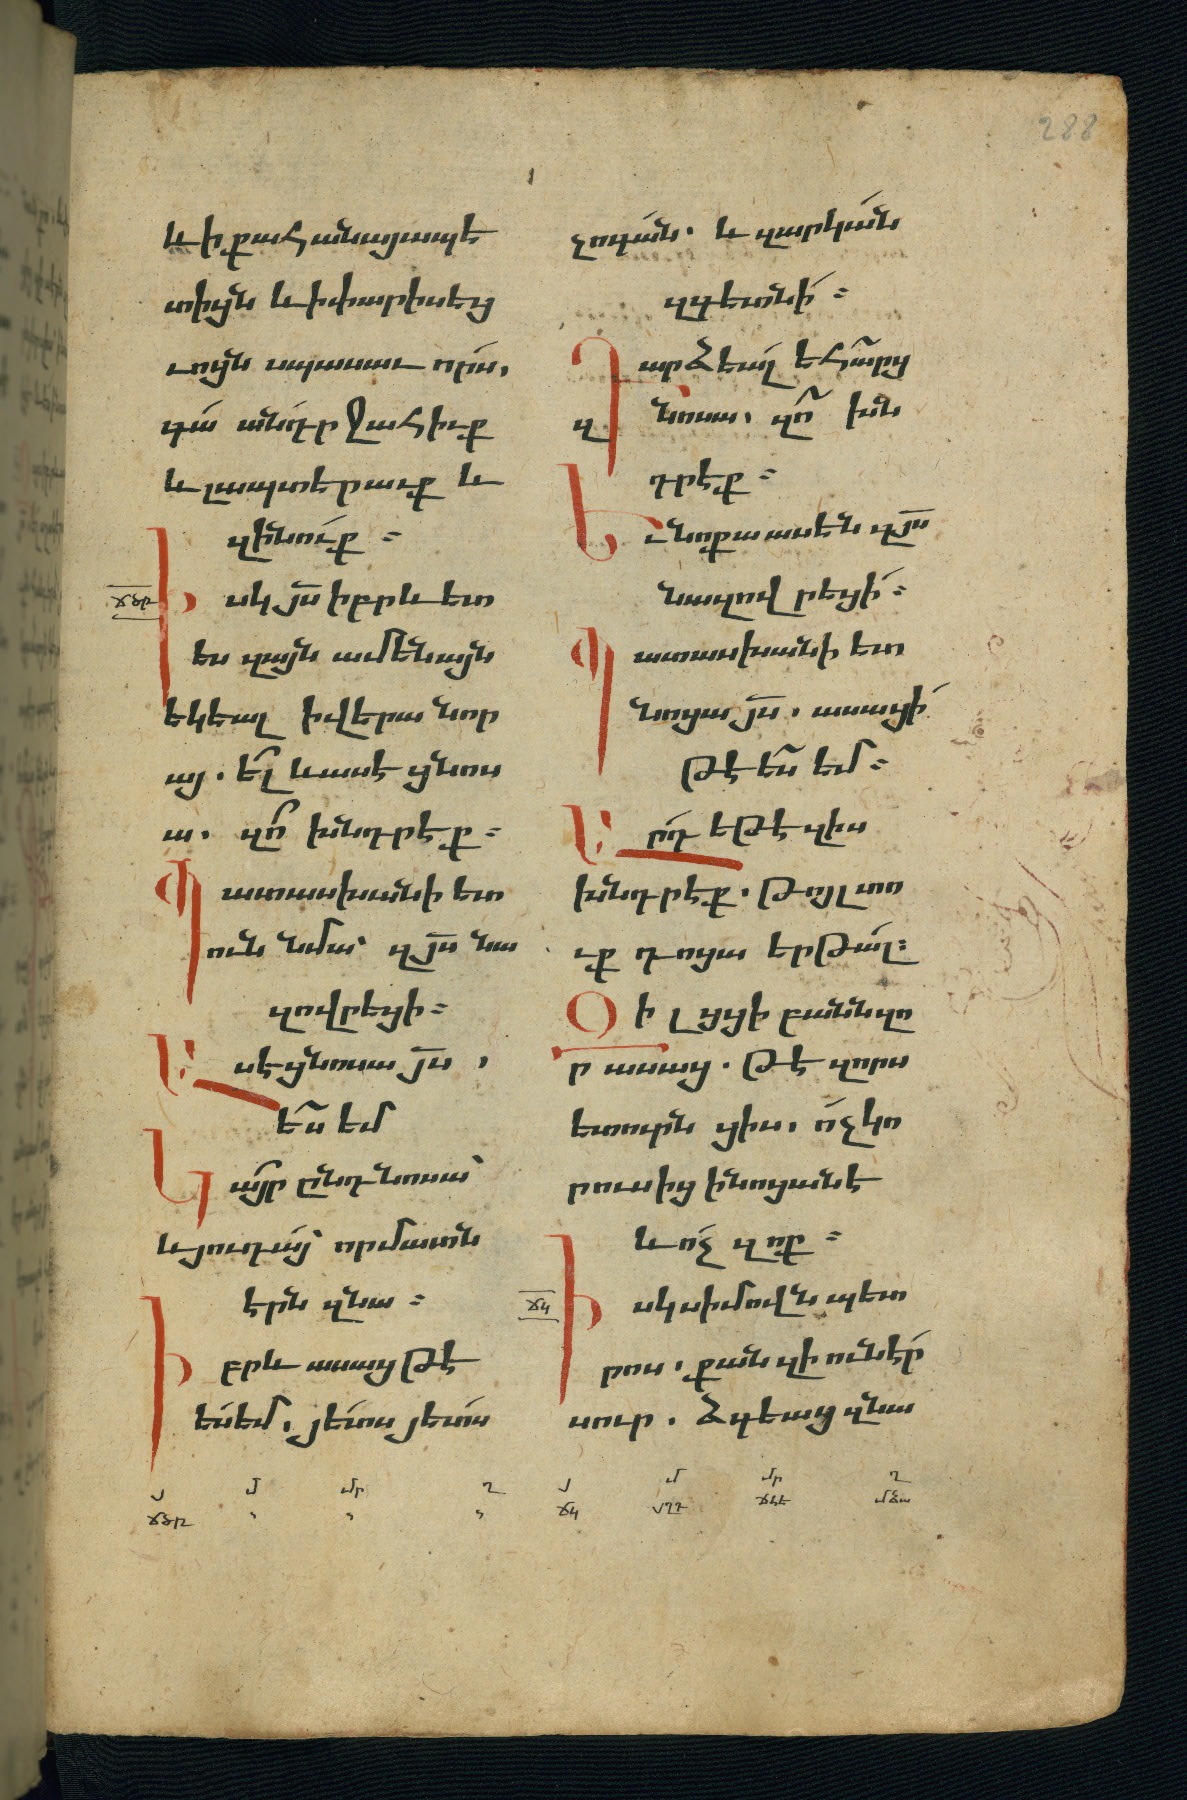 288
և ի քահանայապե
տիցն և ի փարիսեց
ւոցն սպասաւ որս,
գա՛ անդր ջահիւք
և լապտերաւք և
զինուք ։
ճծթ
Իսկ յս իբրև ետ
ես զայն ամենայն
եկեալ ի վերա նոր
այ . ել և ասէ ցնոս
ա . զո՞ խնդրէք ։
Պատասխանի ետ
ուն նմա՝ զյս նա
զովրեցի ։
Ասէ ցնոսա յս ,
ես եմ
Կայր ընդ նոսա՝
և յուդայ՝ որ մատն
էրն զնա ։
Իբրև ասաց թէ
ես եմ , յետս յետս
չոգան . և զարկան
զգետնի ։
Դարձեալ եհարց
զնոսա , զո՞ խն
դրէք ։
Եւ նոքա ասեն զյս
նազովրեցի ։
Պատասխանի ետ
նոցա յս , ասացի
թէ ես եմ ։
Արդ եթէ զիս
խնդրէք . թոյլ տո
ւք դոցա երթալ ։
Զի լցցի բանն զո
ր ասաց . թէ զորս
ետուրն ցիս , ոչ կո
րուսից ի նոցանէ
և ոչ զոք ։
ճկ
Իսկ սիմովն պետ
րոս . քանզի ունէր
սուր . ձգեաց զնա
յ մ մր ղ յ մ մր ղ